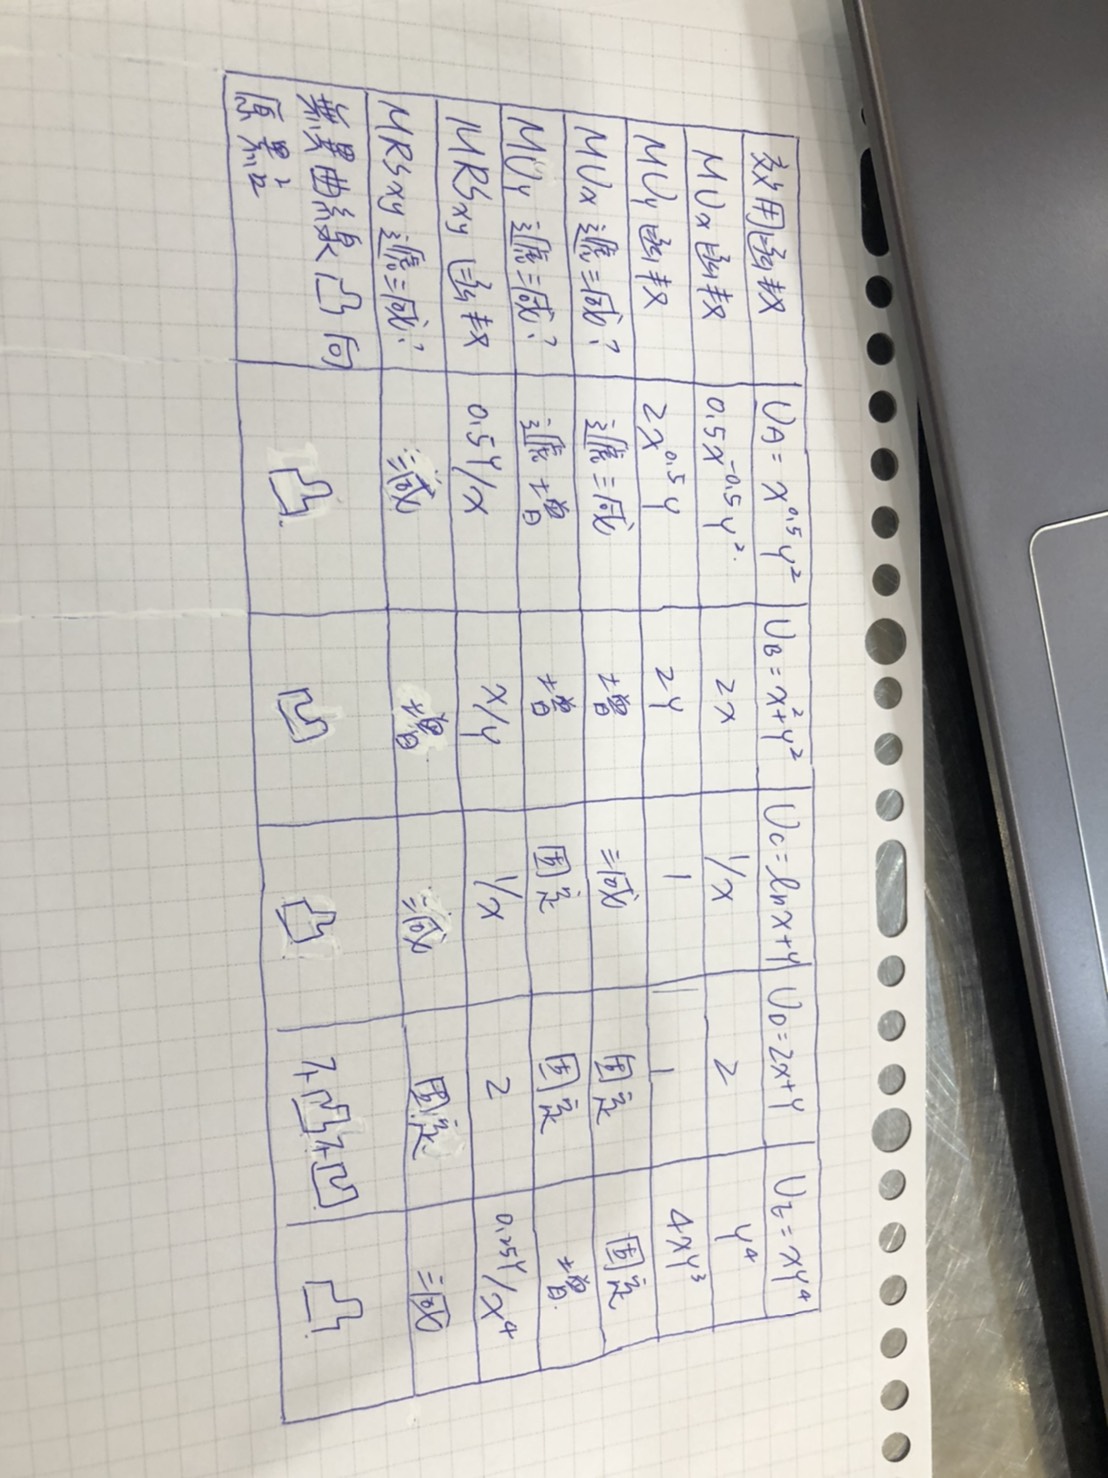 效用函数 U_A = x^0.5 y^2 U_B = x^2+y^2 U_C = ln x+y U_D = 2x+y U_E = xy^4
MUx 函数 0.5x^-0.5 y^2 2x 1/x 2 y^4
MUy 函数 2x^0.5 y 2y 1 1 4xy^3
MUx 遞減? 遞減 增 減 固定 固定
MUy 遞減? 遞增 增 固定 固定 增
MRSxy 函数 0.5y/x x/y 1/x 2 0.25y/x^4
MRSxy 遞減? 減 增 減 固定 減
無異曲線凸向 凸 凹 凸 不凸不凹 凸
原點?